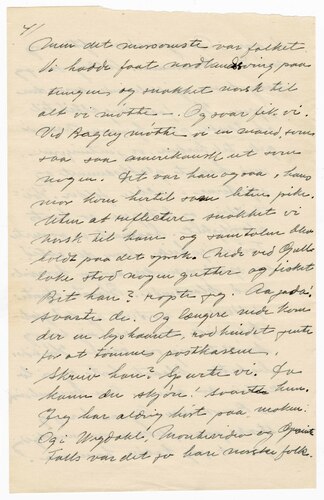 4/
Men det morsomste var folket
Vi hadde faat nordlandssving paa
tungen og snakket norsk til
alt vi møtte —. Og svar fik vi.
Ved Bagley møtte vi en mand, som
saa saa amerikansk ut som
nogen. Det var han ogsaa, hans
mor kom hertil som liten pike.
Uten at reflectere snakket vi
norsk til ham og samtalen blev
holdt paa det sprok. Nede ved
lake stod nogen gutter og fisket
Bit han? ropte jeg. Aa jada!
svarte de. Og længere nede kom
der en lyshaaret, rødkindet jente
for at tømme postkassen.
Skriv han? spurte vi. Ja
kann du skjøn! svarte hun.
Jeg har aldrig hørt paa maken.
Og i Wegdahl, Montevideo og Granite
Falls var det jo bare norske folk.